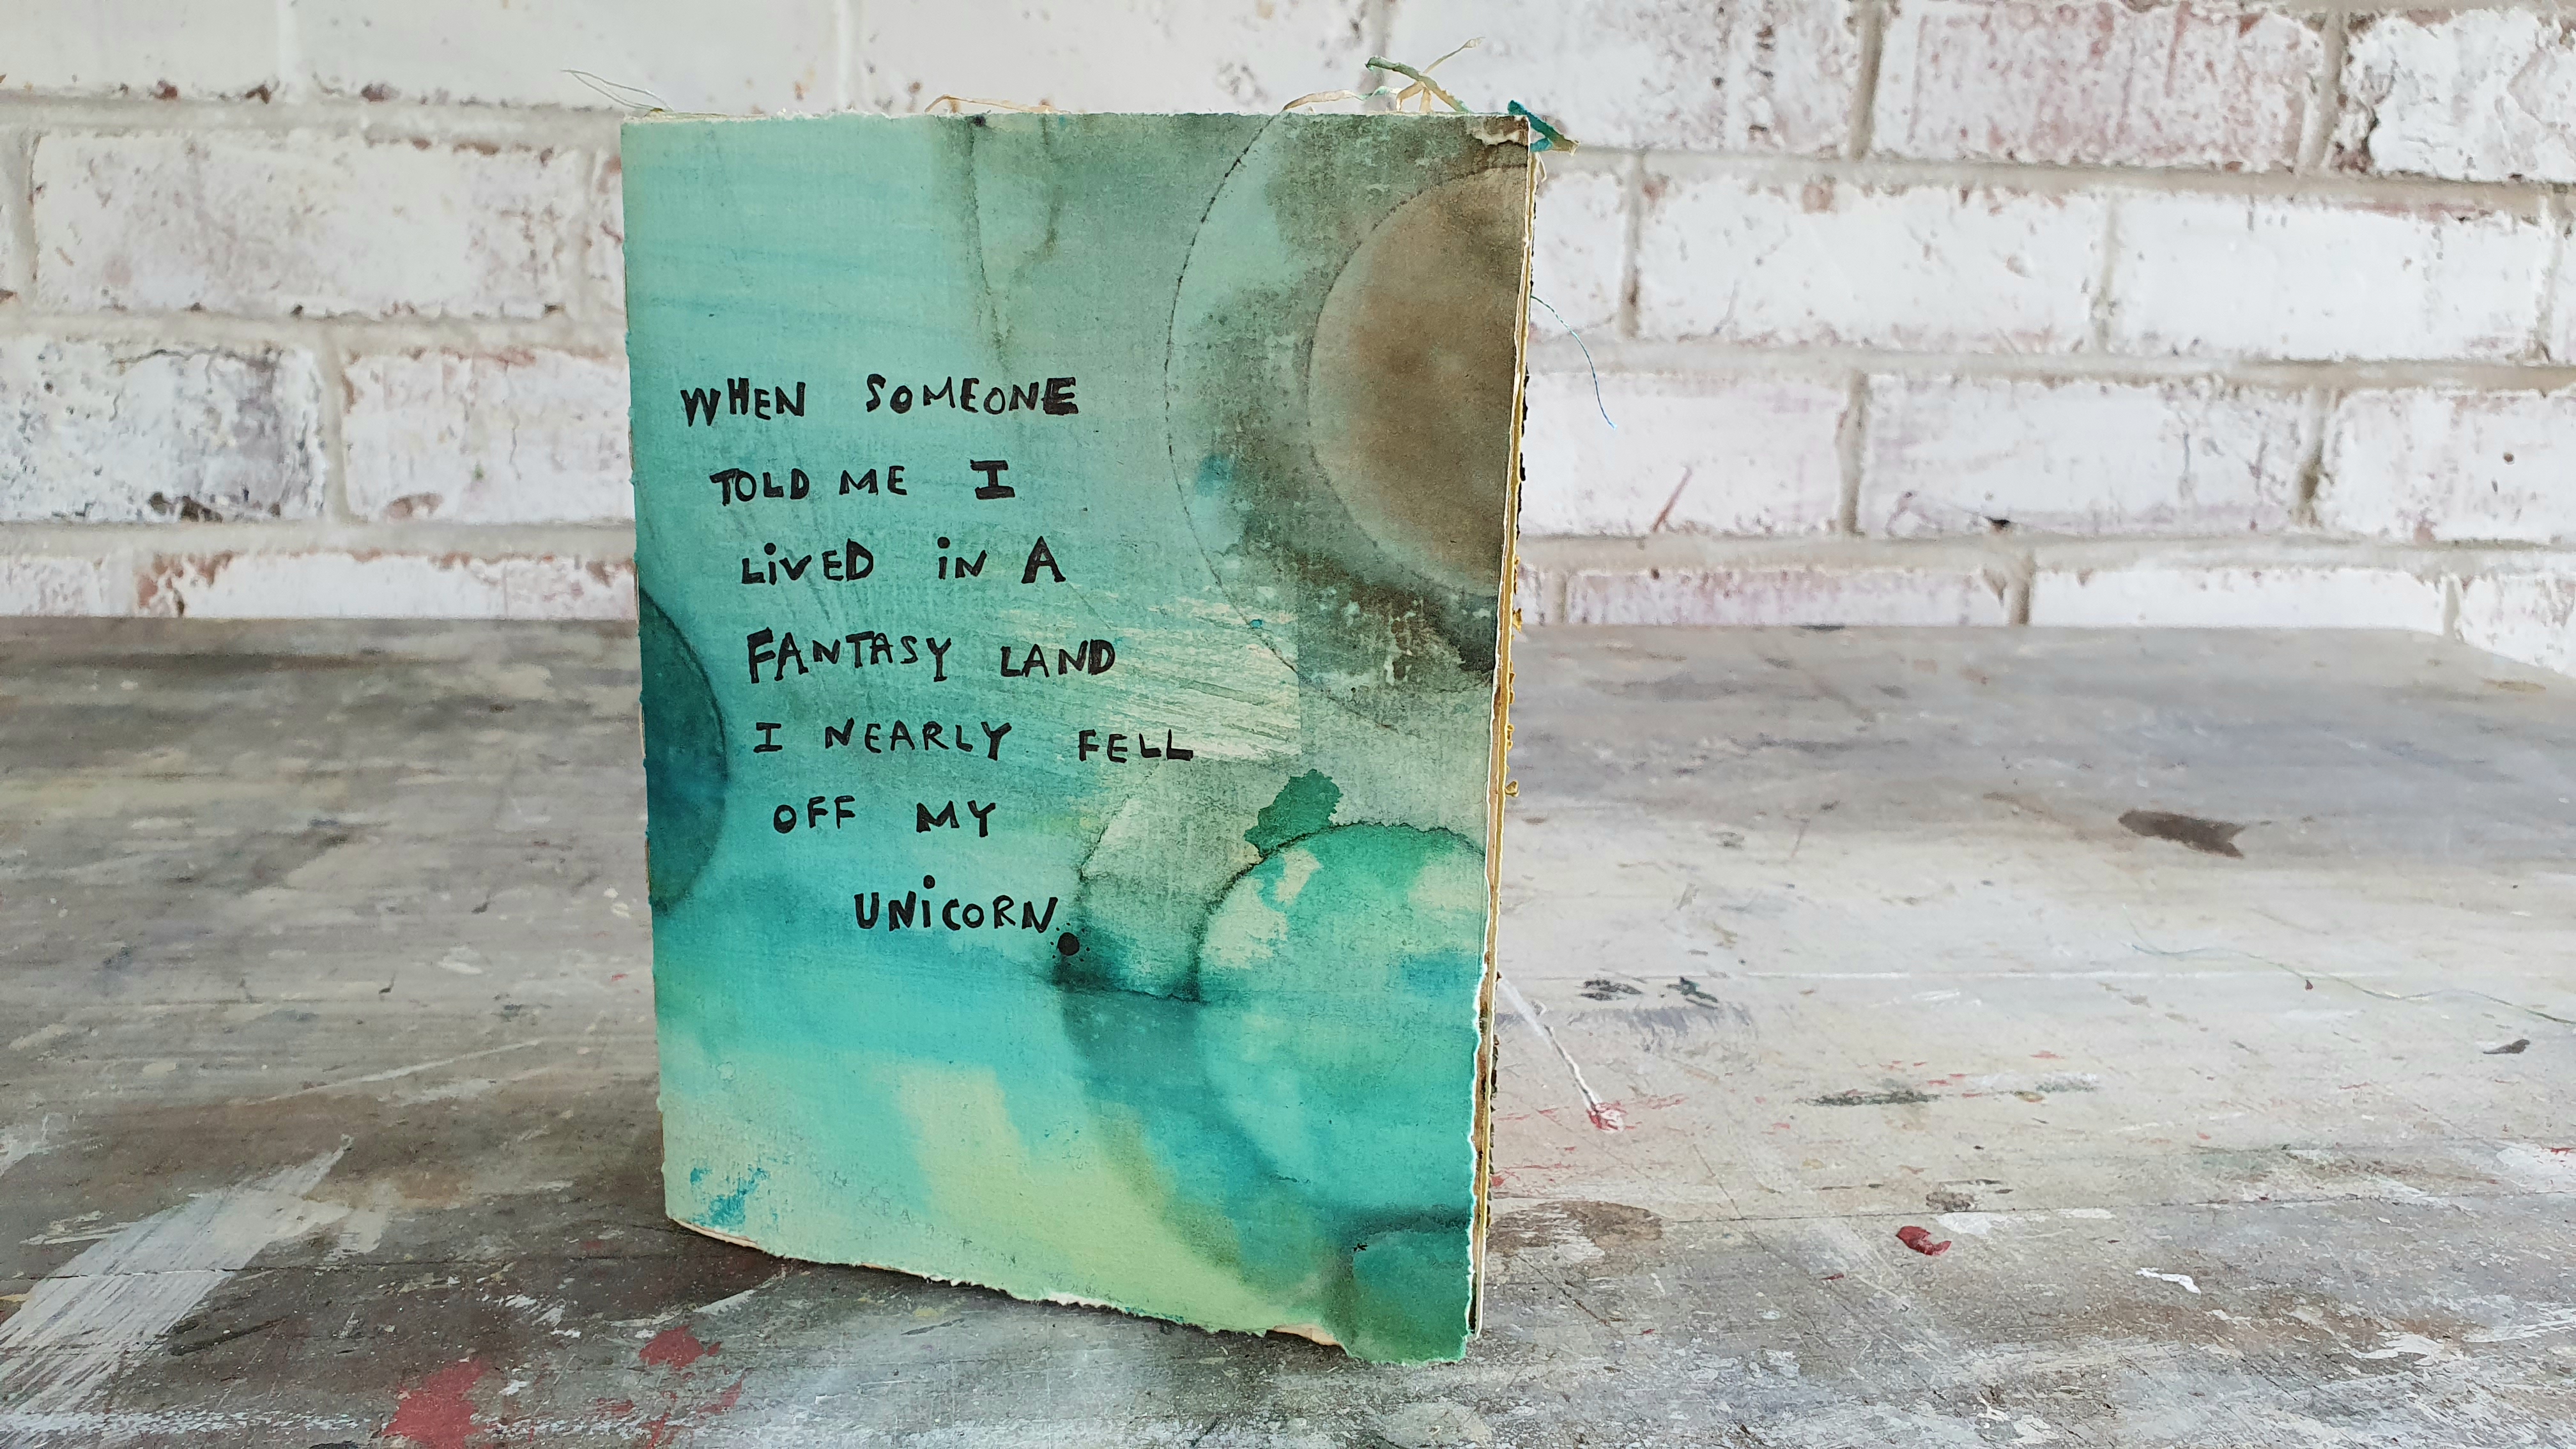 WHEN SOMEONE
TOLD ME I
LiVED iN A
FANTASY LAND
I NEARLY FELL
OFF MY
UNiCORN.